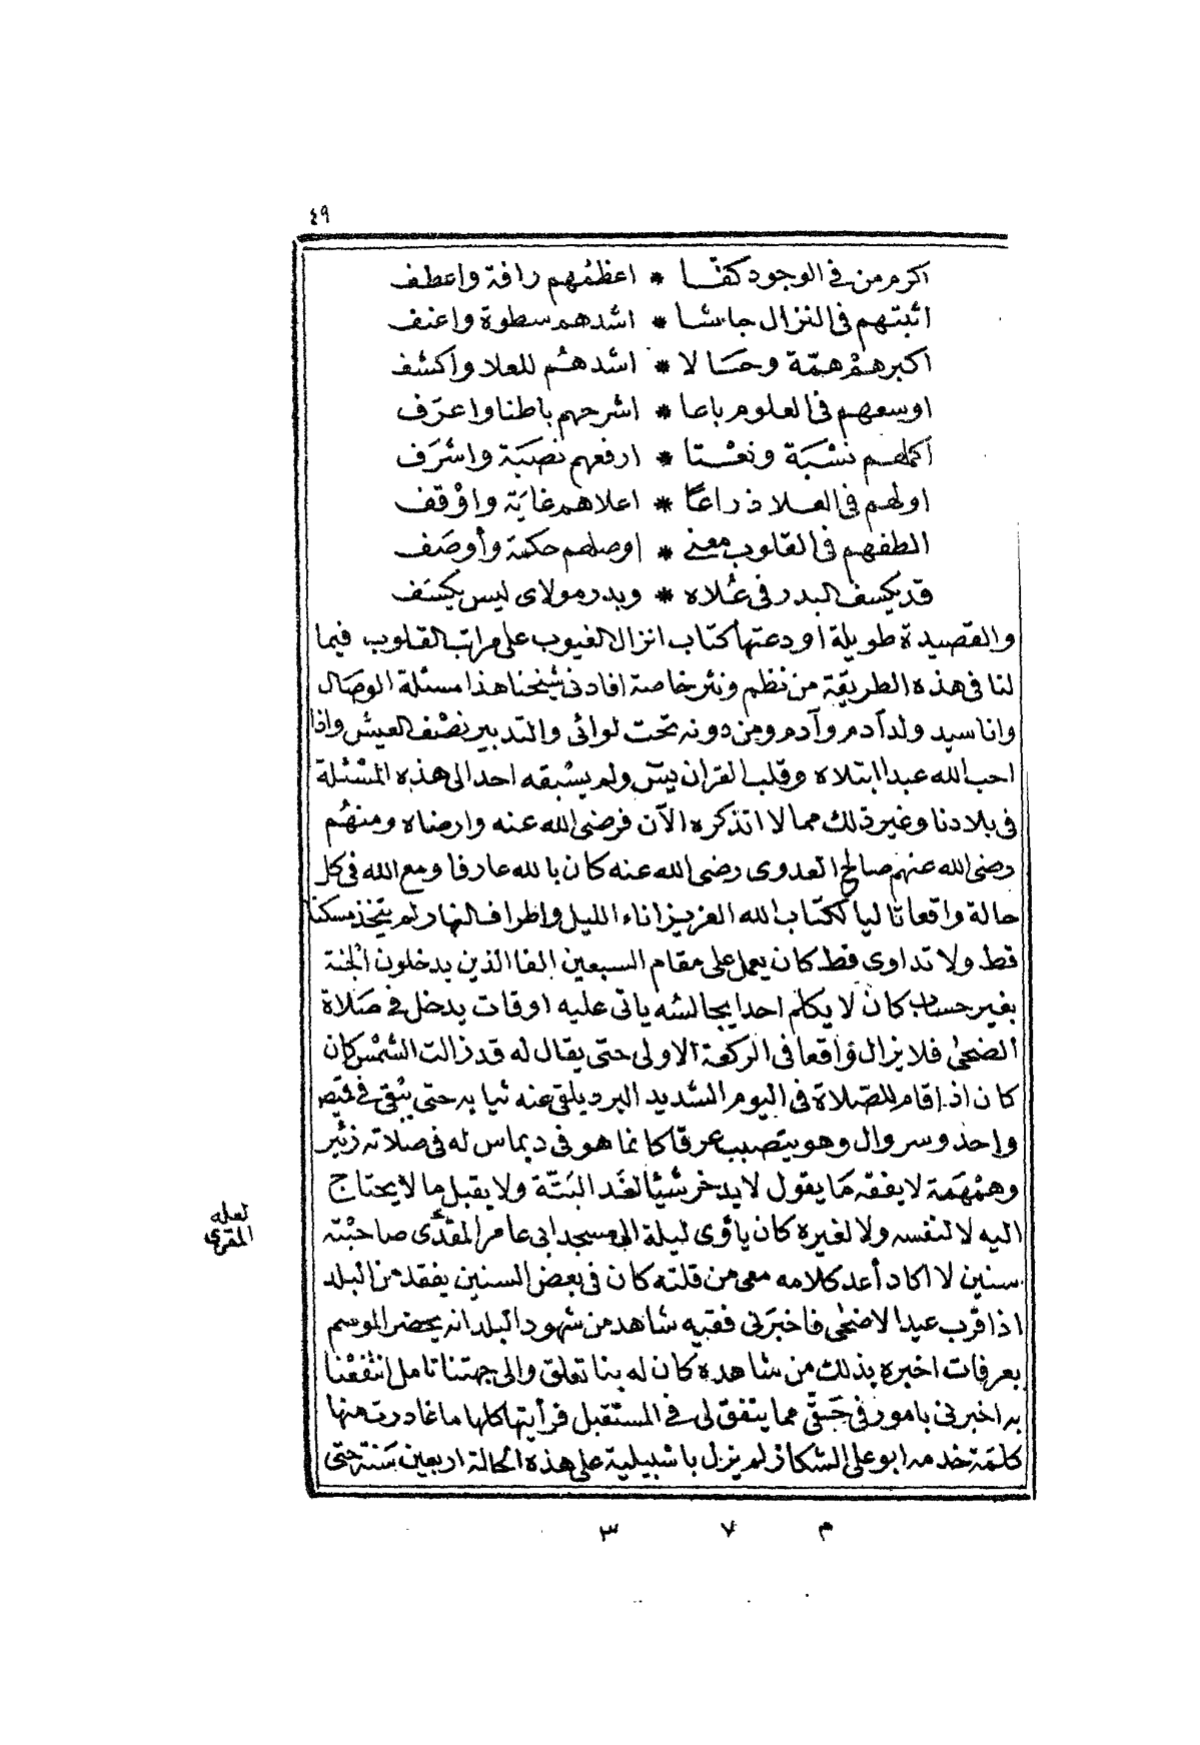 ٤٩
اكرم من فى الوجود كفّا * اعظمُهم رافة واعطف
اثبتهم فى النزال جاشا * اشدهم سطوة واعنف
اكبرهمْ همّة وحَالا * اشدهُم للعلا واكشف
اوسعهم فى العلوم باعا * اشرحهم باطنا واعرَف
اكملهم نسْبَة ونعْتا * ارفعهم نصبَة واشرَف
اولهم فى العلا ذراعًا * اعلاهم غايَة واوْقف
الطفهم فى القلوب معنى * اوصلهم حكمة وأوصَف
قد يكسف البدر فى عُلاه * وبدر مولاى ليس يكسَف
والقصيدة طويلة اودعتها كتاب انزال الغيوب على مراتب القلوب فيما
لنا فى هذه الطريقة من نظم ونثر خاصة افادنى شيخنا هذا مسئلة الوصال
وانا سيد ولد آدم وآدم ومن دونه تحت لوائى والتدبير نصْف العيش واذا
احب الله عبدا ابتلاه وقلب القران يسٓ ولم يسْبقه احد الى هذه المسْئلة
فى بلادنا وغير ذلك مما لا اتذكره الآن فرضى الله عنه وارضاه ومنهُم
رضى الله عنهم صالح العدوى رضى الله عنه كان بالله عارفا ومع الله فى كل
حالة واقعا تاليا لكتاب الله العزيز اناء الليل واطراف النهار لم يتخذ مسكنا
قط ولا تداوى قط كان يعمل على مقام السبعين الفا الذين يدخلون الجنة
بغير حساب كان لا يكلم احدا يجالسْه ياتى عليه اوقات يدخل فى صَلاة
الضحى فلا يزال واقعا فى الركعة الاولى حتى يقال له قد زالت الشمْس كان
كان اذا قام للصّلاة فى اليوم الشديد البرد يلقى عنه ثيابه حتى يبْقى فى قميص
واحد وسروال وهو يتصبب عرقا كانما هو فى ديماس له فى صلاته زئير
وهمْهَمة لا يفقه مَا يقول لا يدخر شيْئا لغَد البَتّة ولا يقبل ما لا يحتاج
اليه لا لنفسه ولا لغيره كان ياوى ليلة الى مسجد ابى عامر المقدّى صاحبْته
سنين لا اكاد أعد كلامه معى من قلته كان فى بعض السنين يفقد من البلد
اذا قرب عيد الاضحى فاخبَرنى فقيه شاهد من شهود البلد انه يحضر الموسم
بعرفات اخبره بذلك من شاهده كان له بنا تعلق والى جهتنا تامل انتفعْنا
به اخبرنى بامور فى حَقّى مما يتفق لى فى المستقبل فرأيتها كلها ما غادرت منها
كلمَة خدمه ابو على الشكاز لم يزل باشبيلية على هذه الحالة اربعين سَنة حتى
لعله
المقرى
م ٧ ٣